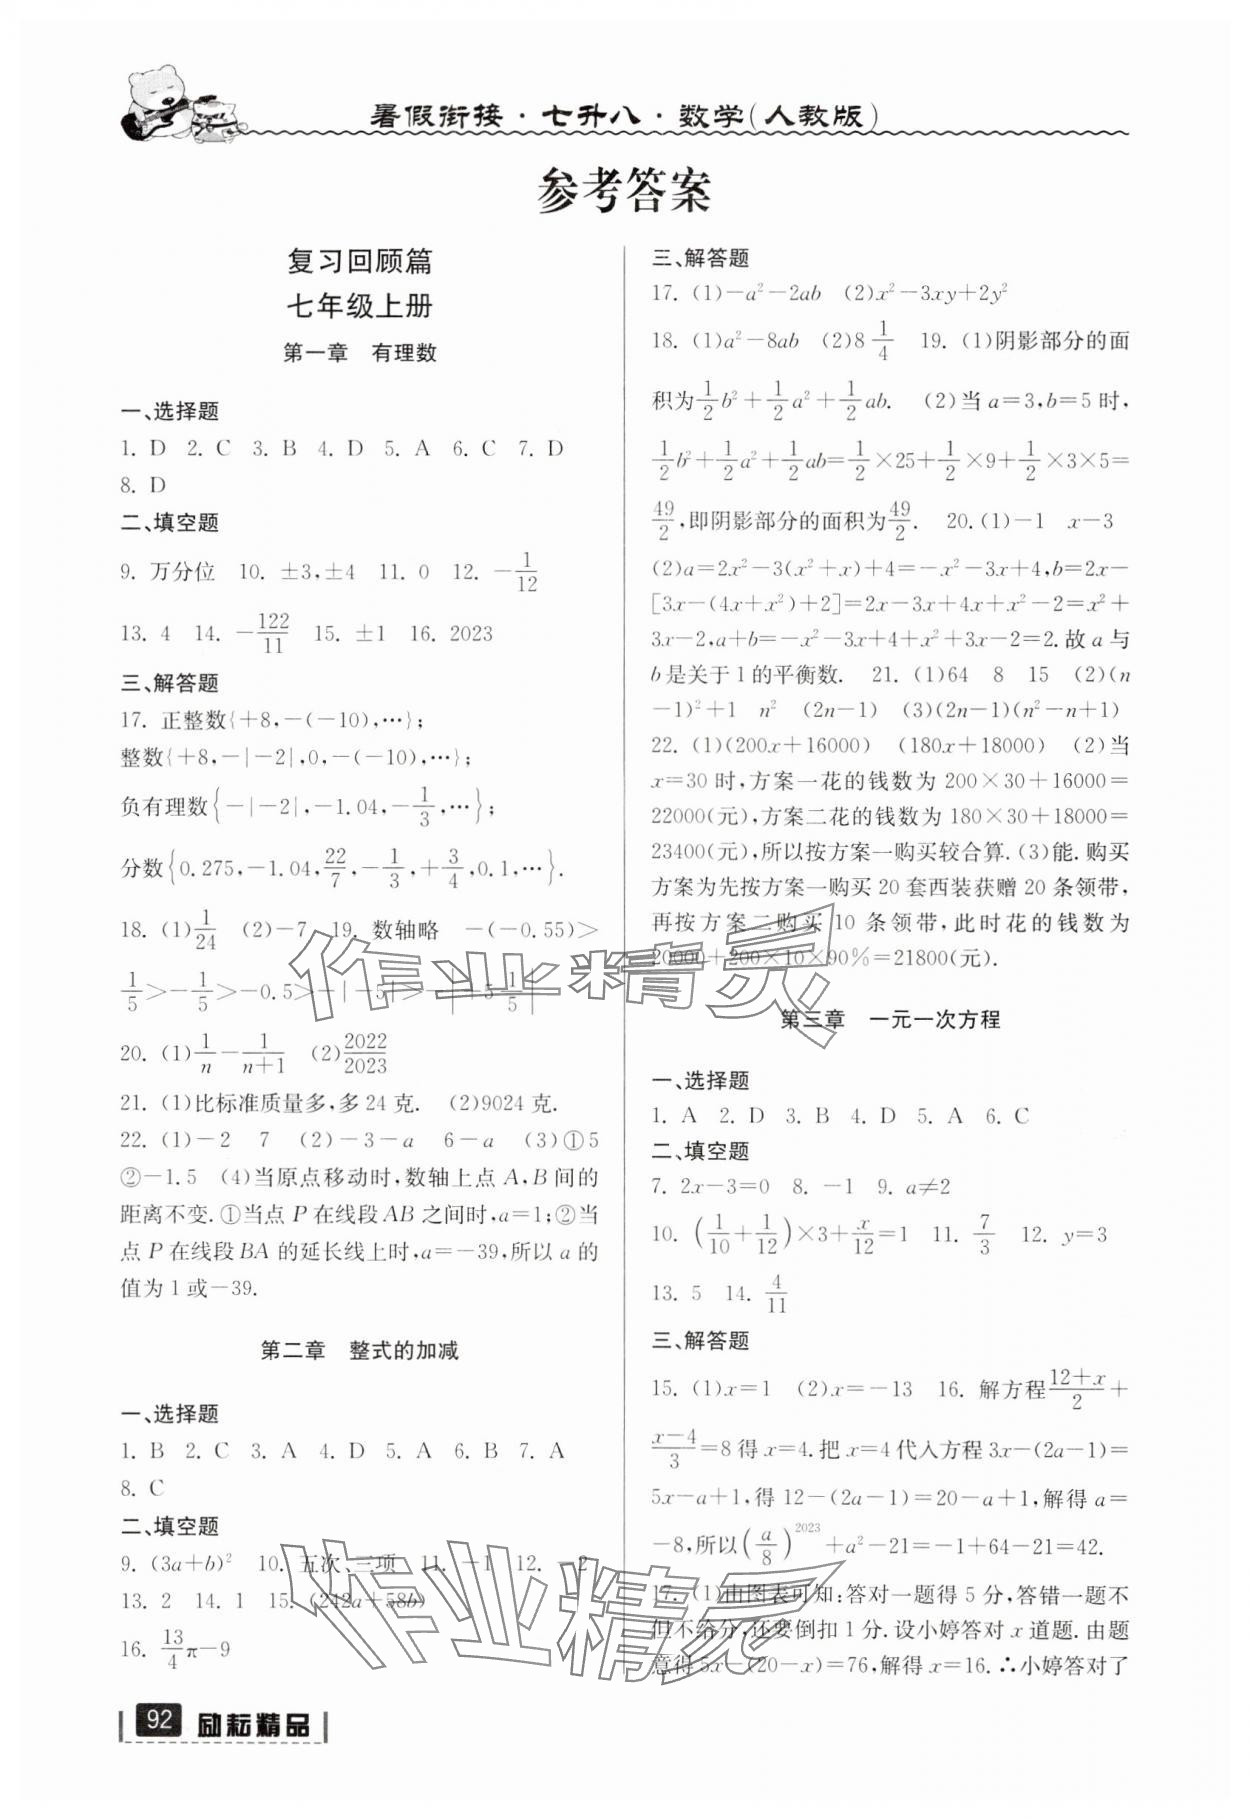 暑假衔接·七升八·数学(人教版)
参考答案
复习回顾篇
七年级上册
第一章 有理数
一、选择题
1. D 2. C 3. B 4. D 5. A 6. C 7. D
8. D
二、填空题
9. 万分位 10. ±3,±4 11. 0 12. -1/12
13. 4 14. -122/11 15. ±1 16. 2023
三、解答题
17. 正整数{+8,-(-10),…};
整数{+8,-|-2|,0,-(-10),…};
负有理数{-|-2|,-1.04,-1/3,…};
分数{0.275,-1.04,22/7,-1/3,+3/4,0.1,…}.
18. (1)1/24 (2)-7 19. 数轴略 -(-0.55)>
1/5>-1/5>-0.5>-|-5|>-|+5 1/5|
20. (1)1/n-1/(n+1) (2)2022/2023
21. (1)比标准质量多,多24克. (2)9024克.
22. (1)-2 7 (2)-3-a 6-a (3)①5
②-1.5 (4)当原点移动时,数轴上点A,B间的
距离不变.①当点P在线段AB之间时,a=1;②当
点P在线段BA的延长线上时,a=-39,所以a的
值为1或-39.
第二章 整式的加减
一、选择题
1. B 2. C 3. A 4. D 5. A 6. B 7. A
8. C
二、填空题
9. (3a+b)² 10. 五次、三项 11. -1 12. -2
13. 2 14. 1 15. (242a+58b)
16. 13/4π-9
92 励耘精品
三、解答题
17. (1)-a²-2ab (2)x²-3xy+2y²
18. (1)a²-8ab (2)8 1/4 19. (1)阴影部分的面
积为1/2b²+1/2a²+1/2ab. (2)当a=3,b=5时,
1/2b²+1/2a²+1/2ab=1/2×25+1/2×9+1/2×3×5=
49/2,即阴影部分的面积为49/2. 20.(1)-1 x-3
(2)a=2x²-3(x²+x)+4=-x²-3x+4,b=2x-
[3x-(4x+x²)+2]=2x-3x+4x+x²-2=x²+
3x-2,a+b=-x²-3x+4+x²+3x-2=2.故a与
b是关于1的平衡数. 21. (1)64 8 15 (2)(n
-1)²+1 n² (2n-1) (3)(2n-1)(n²-n+1)
22. (1)(200x+16000) (180x+18000) (2)当
x=30时,方案一花的钱数为200×30+16000=
22000(元),方案二花的钱数为180×30+18000=
23400(元),所以按方案一购买较合算.(3)能.购买
方案为先按方案一购买20套西装获赠20条领带,
再按方案二购买10条领带,此时花的钱数为
20000+200×10×90%=21800(元).
第三章 一元一次方程
一、选择题
1. A 2. D 3. B 4. D 5. A 6. C
二、填空题
7. 2x-3=0 8. -1 9. a≠2
10. (1/10+1/12)×3+x/12=1 11. 7/3 12. y=3
13. 5 14. 4/11
三、解答题
15. (1)x=1 (2)x=-13 16. 解方程(12+x)/2+
(x-4)/3=8得x=4.把x=4代入方程3x-(2a-1)=
5x-a+1,得12-(2a-1)=20-a+1,解得a=
-8,所以(a/8)²⁰²³+a²-21=-1+64-21=42.
17. (1)由图表可知:答对一题得5分,答错一题不
但不给分,还要倒扣1分.设小婷答对x道题.由题
意得5x-(20-x)=76,解得x=16.∴小婷答对了
作业精灵
作业精灵